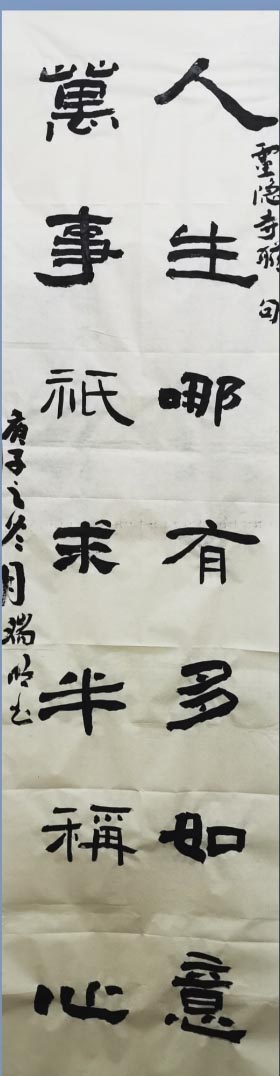 人生哪有多如意
靈隱寺聯句
萬事祇求半稱心
庚子之冬月瑞明书